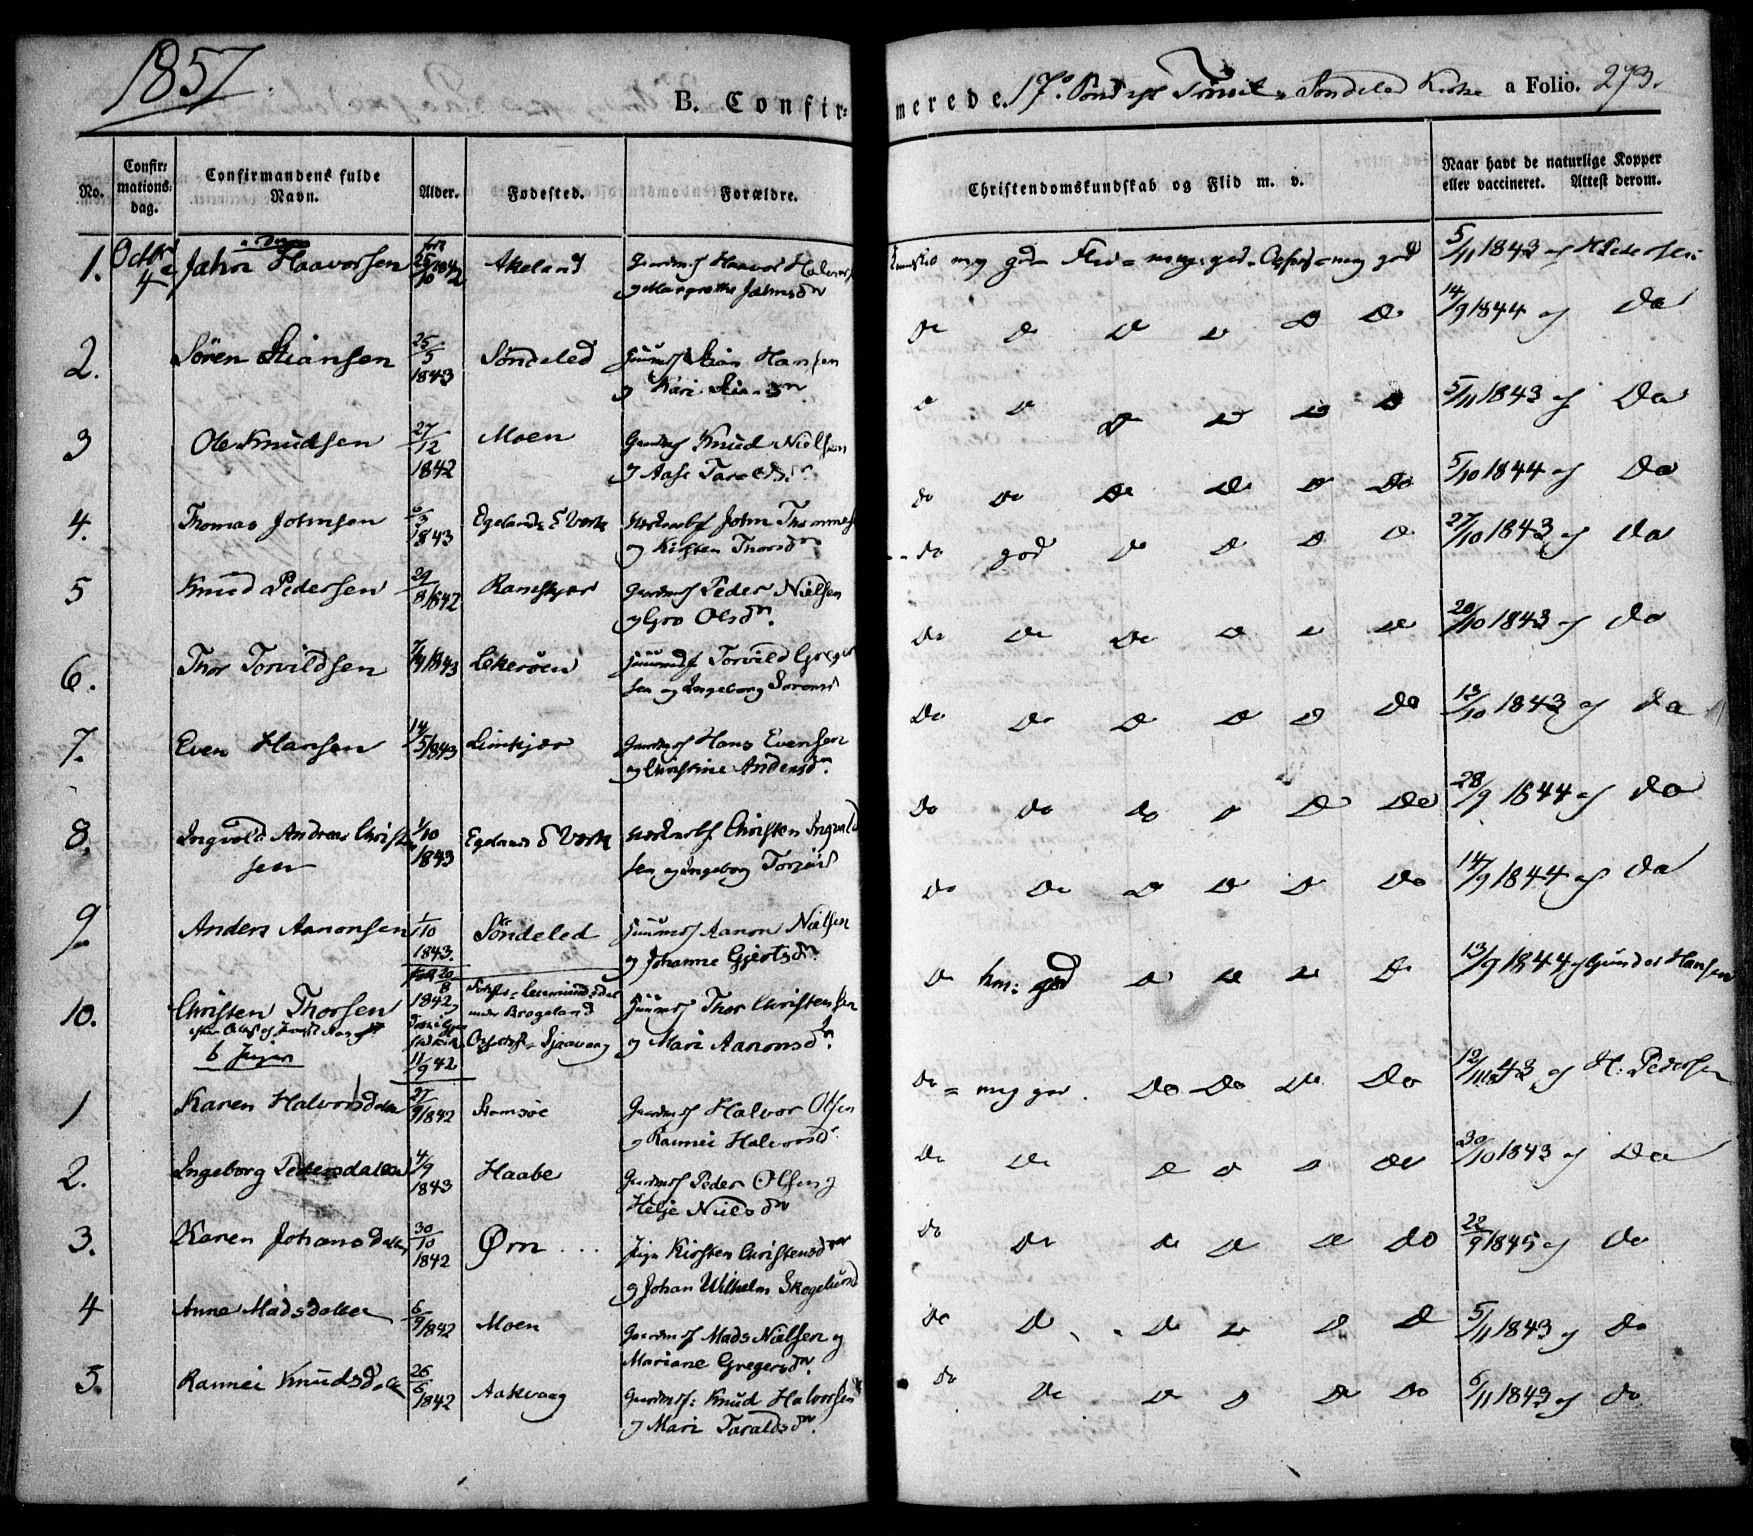 1857.
B. Confir-
merede. 17de Søndag Trinit. Søndeled Kirke a Folio. 273.
No.
Confir-
mations-
dag.
Confirmandens fulde
Navn.
Alder.
Fødested.
Forældre.
Christendomskundskab og Flid m. v.
Naar havt de naturlige Kopper
eller vaccineret. Attest derom.
1. Octbr 4 Jahn Haavorsen 25/10 1842 Akeland Haavor
og Margrethe Jahnsd. meg god Flid meg god meg god 5/11 1843 af H Pedersen
2. Sören Stiansen 25/5 1843 Söndeled Stian Hansen
og Kari do do do do do do 14/9 1844 af do
3 Ole Knudsen 27/12 1842 Moen Gaardmd Knud Nielsen
og Aase Taraldsd. do do do do do do 5/11 1843 af Do
4. Thomas Johnsen 1843 Egelands Værk John
og Kirsten Thorsd. do do do do do do 5/10 1844 af Do
5 Knud Pedersen 29/8 1842 Ramskjær Gaardmd Peder Nielsen
og Gro Olsdr. do god do do do do 27/10 1843 af do
6. Thor Torvildsen 1843 Lekeröen Torvild Greger
sen og Ingeborg do do do do do do 20/10 1843 af do
7. Even Hansen 14/5 1843 Limkjær Gaardmd Hans Evensen
og Christine Andersd. do do do do do do 13/10 1843 af da
8. Ingvold Andreas Christen
sen 1/10 1843 Egelands Værk Christen Ingvald
sen og Ingeborg do do do do do do 28/9 1844 af do
9 Anders Aanonsen 1/10 1843. Söndeled Aanon Nielsen
og Johanne Gjertsdr. do do do do do do 14/9 1844 af da
10. Christen Thorsen 20/8 1842 Thor Christensen
under Brogeland
6 Juger 11/9 42 og Mari Aanonsdr. do god do do do do 13/9 1844 af Gunder Hansen
1 Karen Halvorsdatter 27/9 1842 Gaardmd Halvor Olsen
og Raunei Halvorsd. do meg god. do do do do 12/11 43 af H. Pedersen
2. Ingeborg Pedersdatter 4/9 1843 Haabe Gaardmd Peder Olsen og
Helje Nielsdr do do do do do do 30/10 1843 af Do
3. Karen Johansdatter 30/10 1842 Örn . . . Pige Kirsten Christensdatter
og Johan Wilhelm Skogelund do do do do do do 22/9 1845 af do
4 Anne Madsdatter 6/9 1842 Moen Gaardmd Mads Nielsen og
Mariane Gregersdr. do do do do do do 5/11 1843 af do
5. Raunei Knudsdatter 26/6 1842 Aakvaag Gaardmd: Knud Halvorsen
og Mari Taraldsdr. do do do do do do 6/11 1843 af do